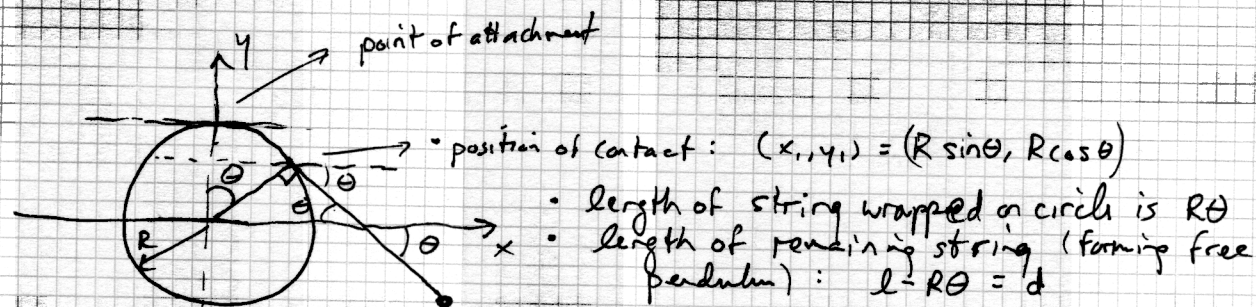 y
point of attachment
• position of contact: (x₁, y₁) = (R sinθ, R cosθ)
θ
θ
θ
• length of string wrapped on circle is Rθ
θ
x
R
• length of remaining string (forming free
pendulum): l - Rθ = d